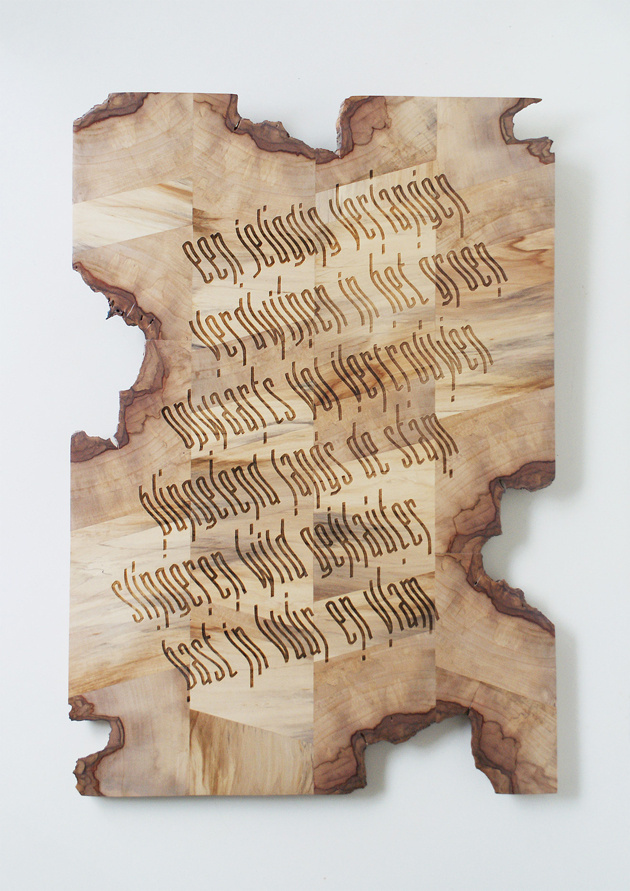 een jeugdig verlangen
verdwijnen in het groen
ontwaarts vol vertrouwen
bungelend langs de stam
slingeren wild geklauter
bast in vuur en vlam